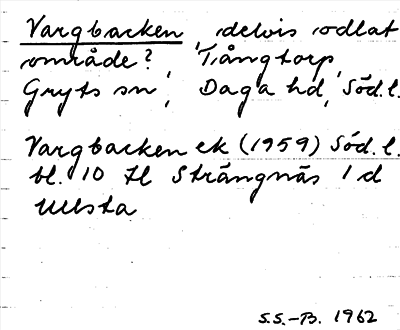 Vargbacken, delvis odlat
område? Tångtorp,
Gryts sn, Daga hd, Söd. l.
Vargbacken ek (1959) Söd. l.
bl. 10 H Strängnäs 1 d
Ullsta
S.S.-B. 1962